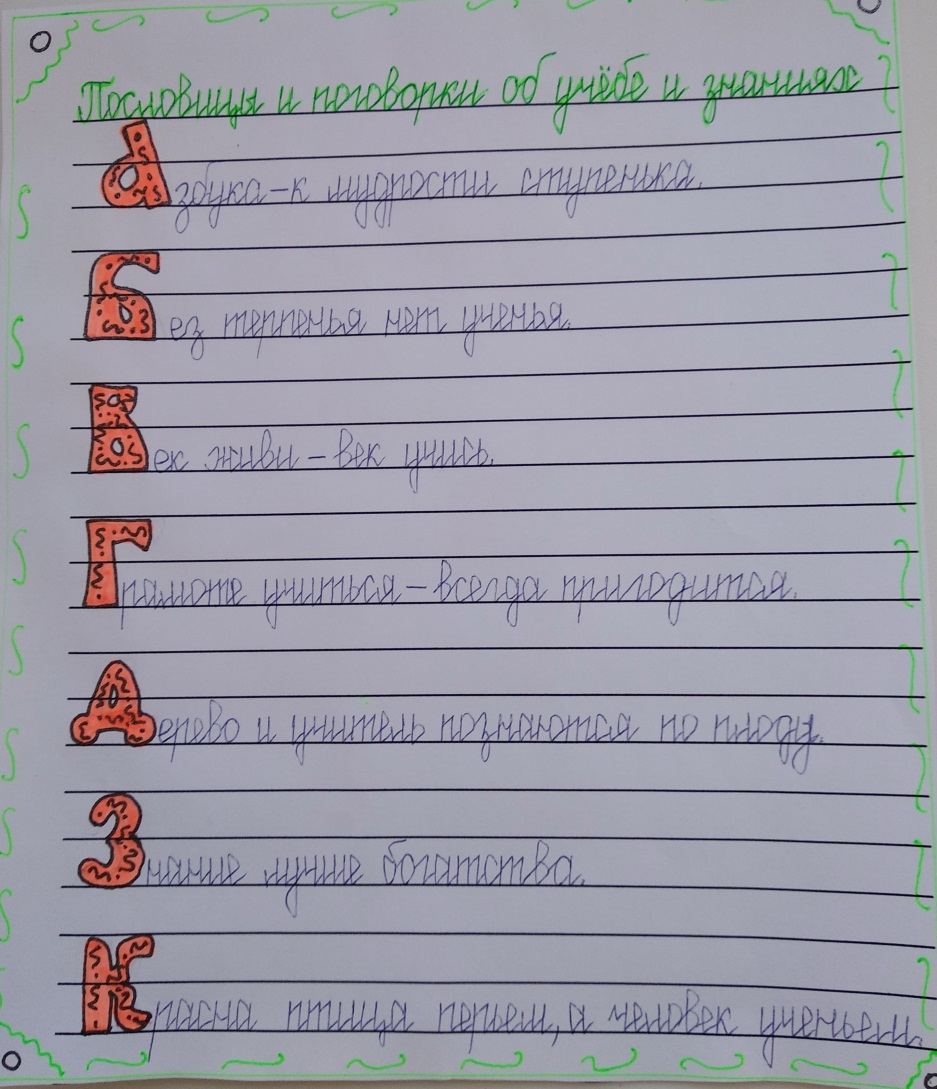 Пословицы и поговорки об учёбе и знаниях
Азбука – к мудрости ступенька.
Без терпенья нет ученья.
Век живи – век учись.
Грамоте учиться – всегда пригодится.
Дерево и учитель познаются по плоду.
Знание лучше богатства.
Красна птица перьем, а человек ученьем.